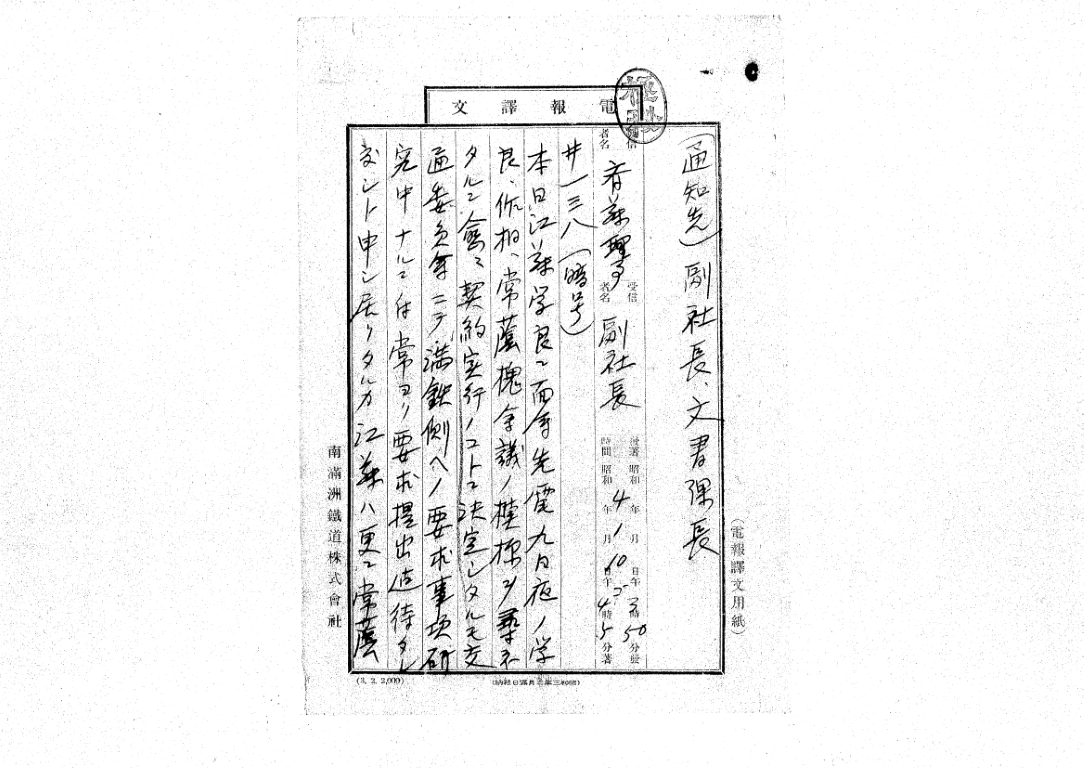 電報譯文
極秘
(通知先) 副社長、文書課長
發信者名 斉藤理事 受信者名 副社長
發著 昭和4年1月10日午 3時50分發
時間 昭和 年 月 日午后4時5分著
廾一三八(暗号)
本日江藤学良ニ面会先電九日夜ノ学
良、作相、常蔭槐会議ノ模様ヲ尋ネ
タルニ愈々契約実行ノコトニ決定シタルモ交
通委員会ニテ満鉄側ヘノ要求事項研
究中ナルニ付常ヨリ要求提出迄待タレ
度シト申シ居リタルカ江藤ハ更ニ常蔭
南滿洲鐵道株式會社
(電報譯文用紙)
(3. 2. 2,000)